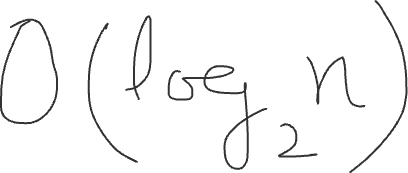 O(log₂n)